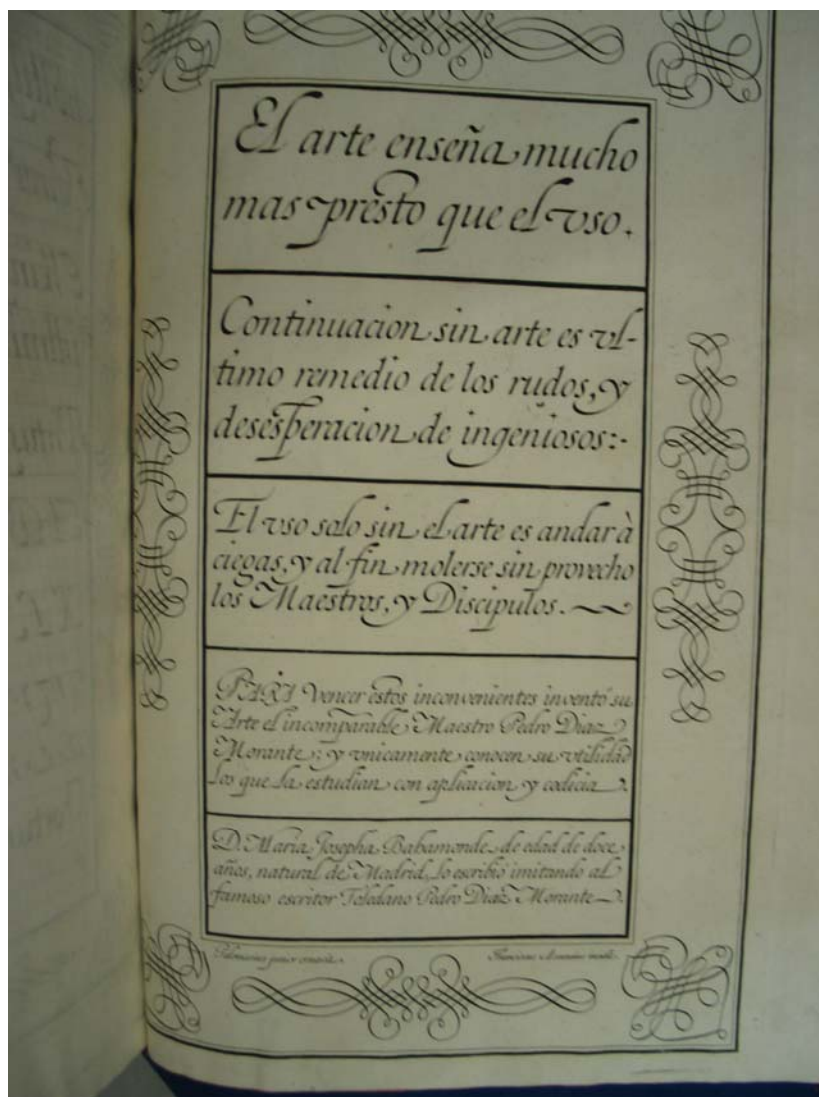 El arte enseña mucho
mas presto que el vso.
Continuacion sin arte es vl-
timo remedio de los rudos, y
desesperacion de ingeniosos:-
El vso solo sin el arte es andar à
ciegas, y al fin molerse sin provecho
los Maestros, y Discipulos.
PARA vencer estos inconvenientes inventó su
Arte el incomparable Maestro Pedro Diaz
Morante; y vnicamente conocen su vtilidad
los que la estudian con aplicacion y codicia.
D. Maria Josepha Bahamonde de edad de doce
años, natural de Madrid, lo escribió imitando al
famoso escritor Toledano Pedro Diaz Morante.